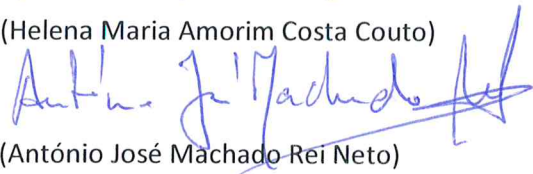 (Helena Maria Amorim Costa Couto)
António José Machado
(António José Machado Rei Neto)